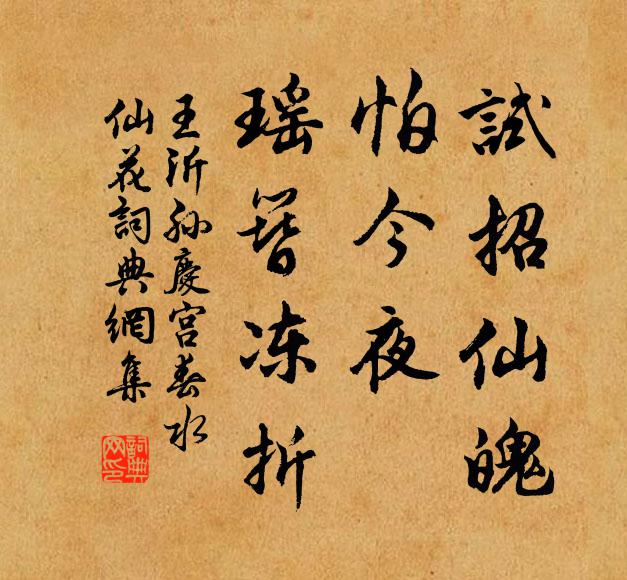 試招仙魄
怕今夜
瑶簪冻折
王沂孫慶宫春水
仙花詞典網集
詞典
网印